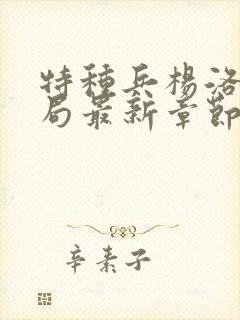 特種兵楊洛
局最新章節
辛素子